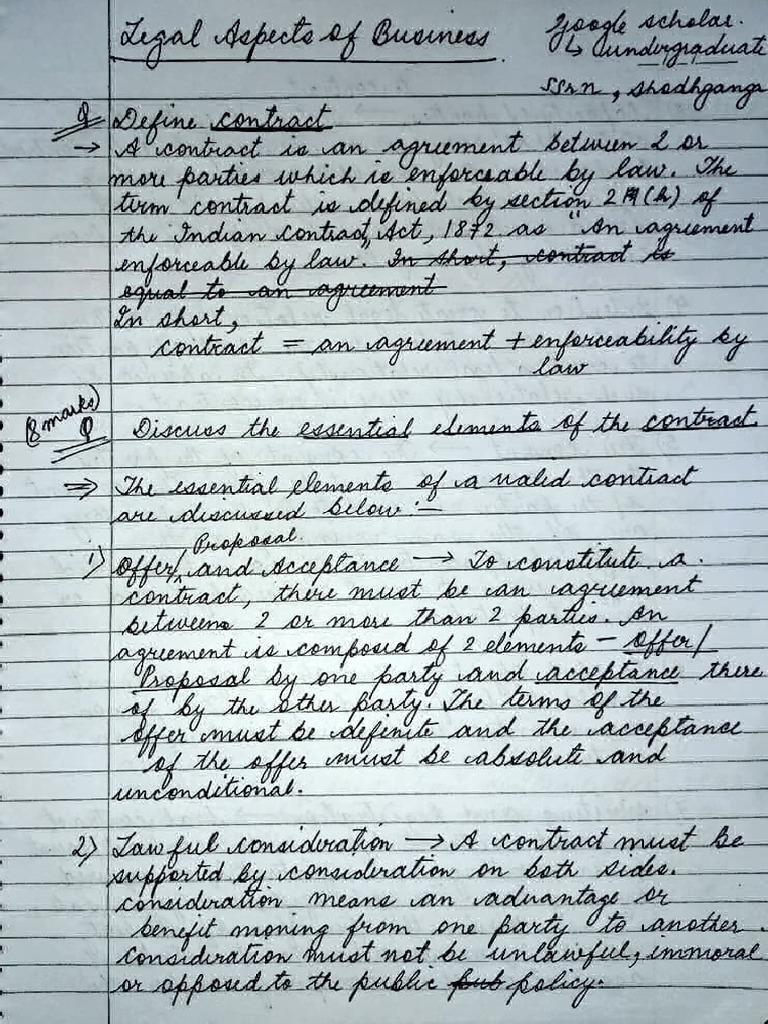 Legal Aspects of Business
google scholar.
↳ undergraduate
ssrn, shodhganga
Q Define contract
→ A contract is an agreement between 2 or
more parties which is enforceable by law. The
term contract is defined by section 2 (h) of
the Indian Contract, Act, 1872 as "An agreement
enforceable by law. In short, contract is
equal to an agreement
In short,
contract = an agreement + enforceability by
law
(8 marks)
Q Discuss the essential elements of the contract.
⇒ The essential elements of a valid contract
are discussed below :—
Proposal.
1) Offer/ and Acceptance → To constitute a
contract, there must be an agreement
between 2 or more than 2 parties. An
agreement is composed of 2 elements – Offer/
Proposal by one party and acceptance there
of by the other party. The terms of the
offer must be definite and the acceptance
of the offer must be absolute and
unconditional.
2) Lawful consideration → A contract must be
supported by consideration on both sides.
consideration means an advantage or
benefit moning from one party to another.
consideration must not be unlawful, immoral
or opposed to the public pub policy.